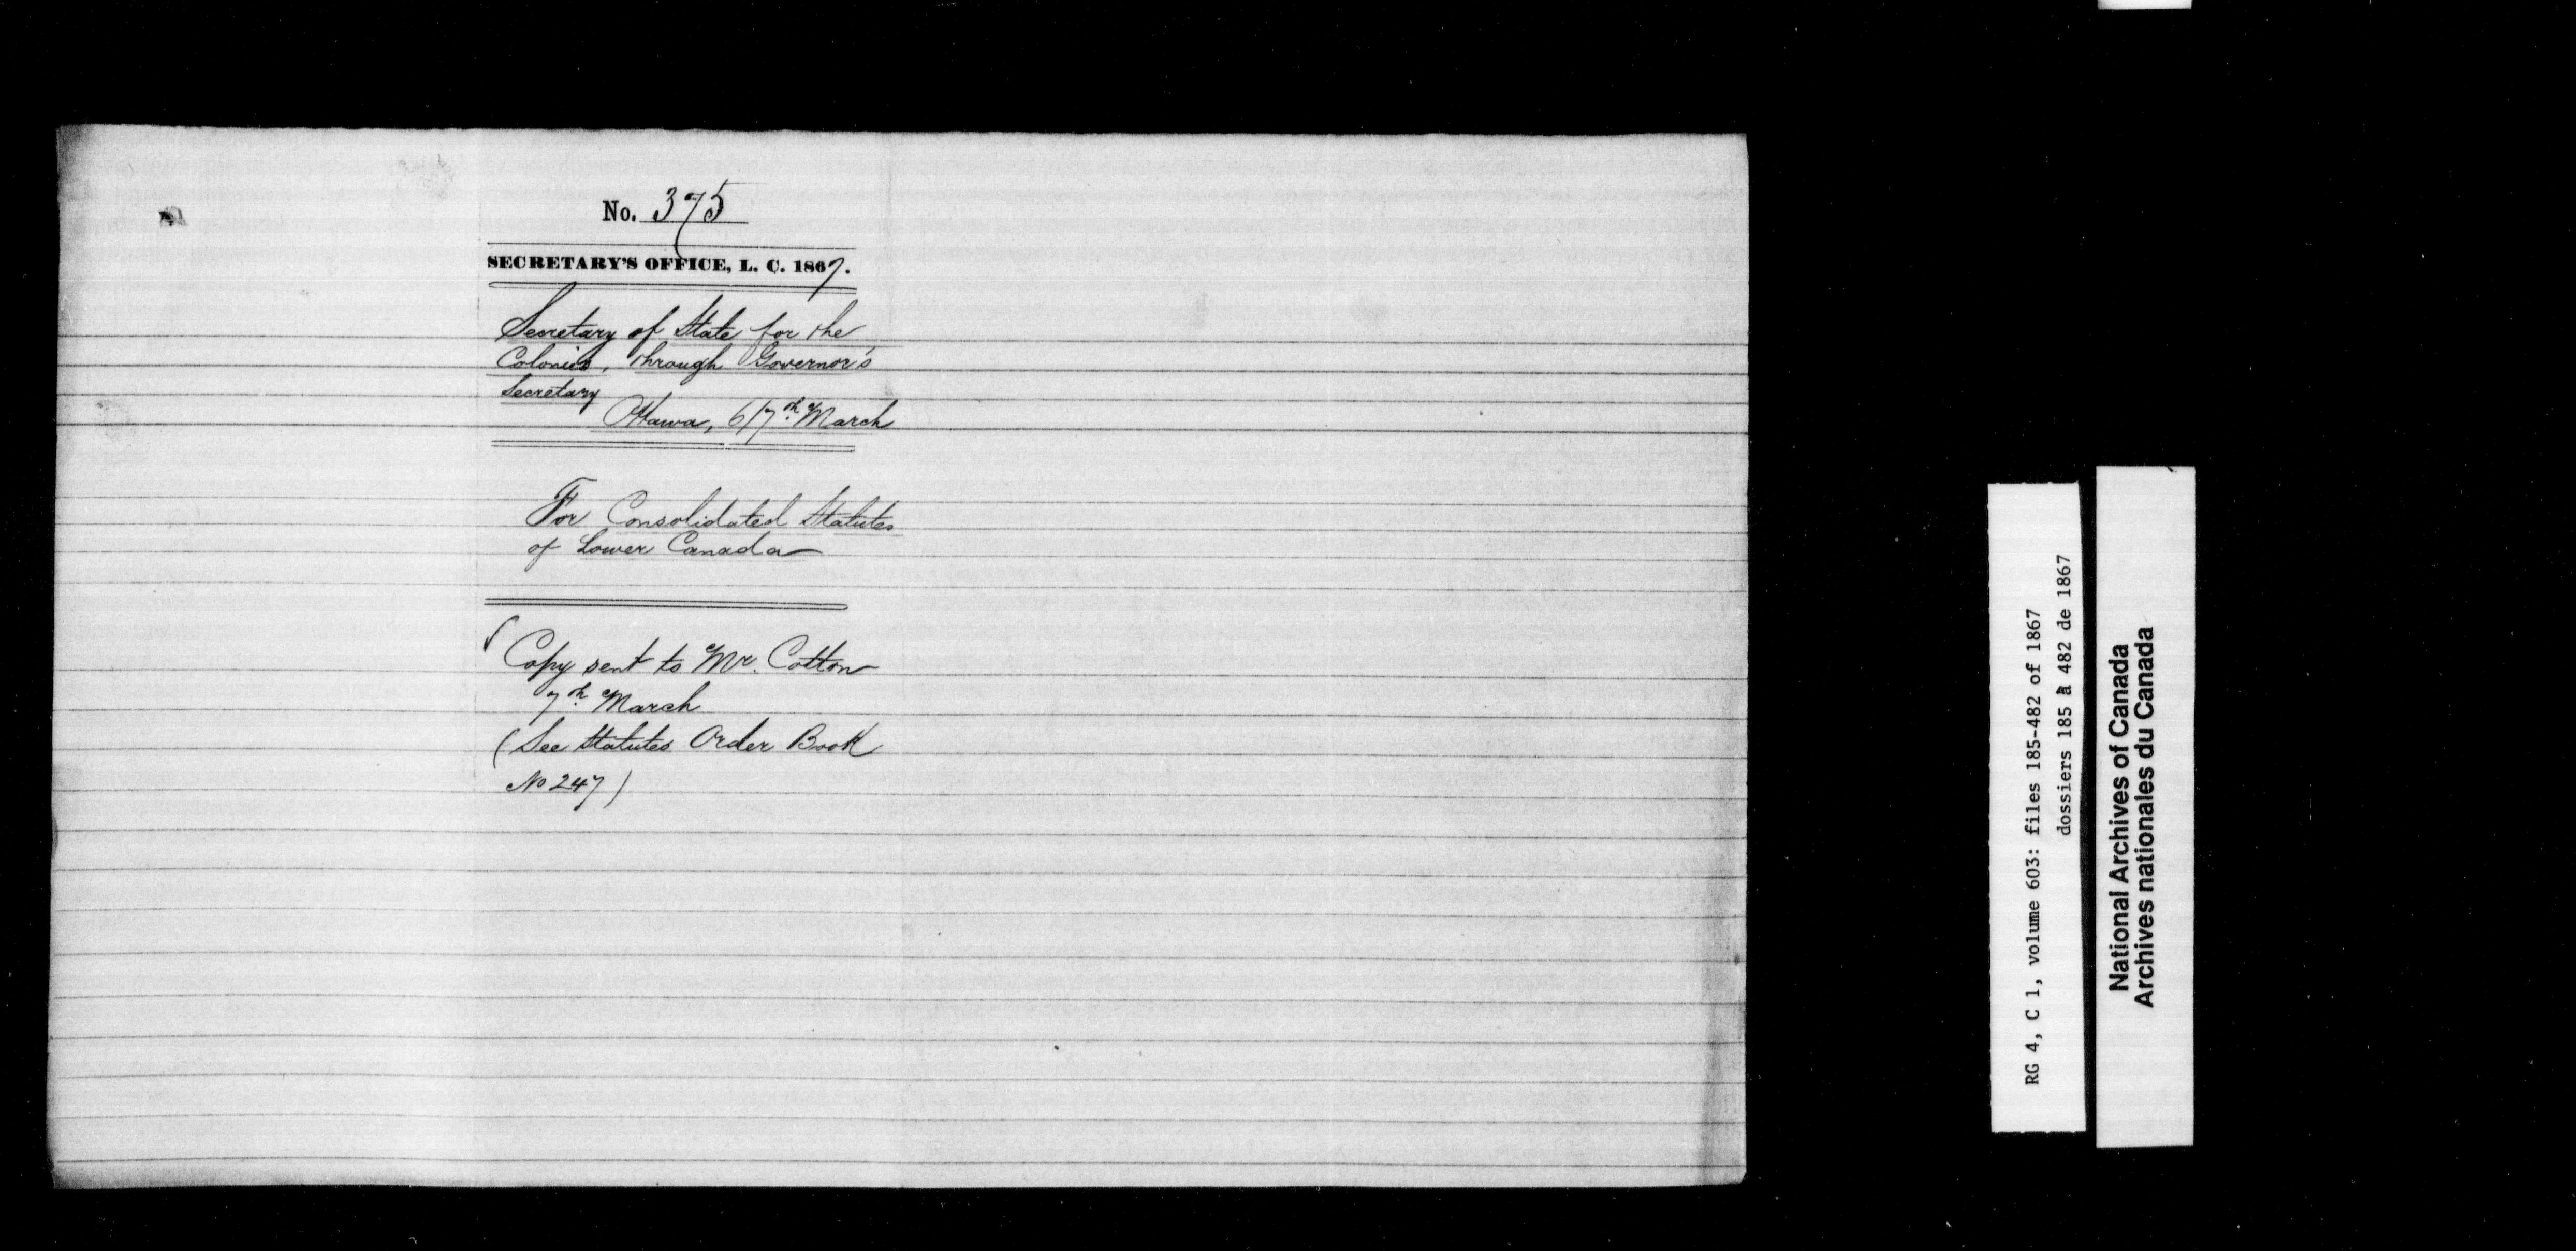 No. 375
SECRETARY'S OFFICE, L. C. 1867.
Secretary of State for the
Colonies, through Governor's
Secretary
Ottawa, 6/7th March
For Consolidated Statutes
of Lower Canada
Copy sent to Mr. Cotton
7th March
(See Statutes Order Book
No 247)
RG 4, C 1, volume 603: files 185-482 of 1867
dossiers 185 à 482 de 1867
National Archives of Canada
Archives nationales du Canada